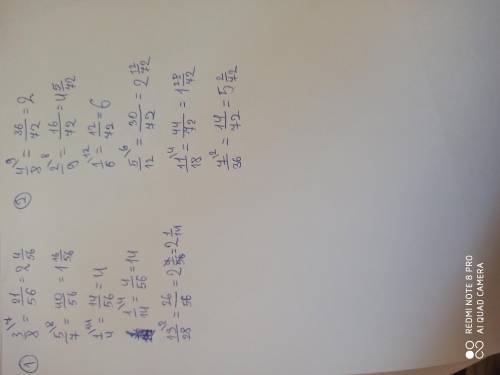 ①
3/8 \7 = 21/56 = 2 4/56
5/7 \8 = 40/56 = 1 16/56
1/4 \14 = 14/56 = 4
1/14 \4 = 4/56 = 14
13/28 \2 = 26/56 = 2 4/56 = 2 1/14
②
4/8 \9 = 36/72 = 2
2/9 \8 = 16/72 = 4 5/72
1/6 \12 = 12/72 = 6
5/12 \6 = 30/72 = 2 12/72
11/18 \4 = 44/72 = 1 28/72
7/36 \2 = 14/72 = 5 2/72
REDMI NOTE 8 PRO
AI QUAD CAMERA